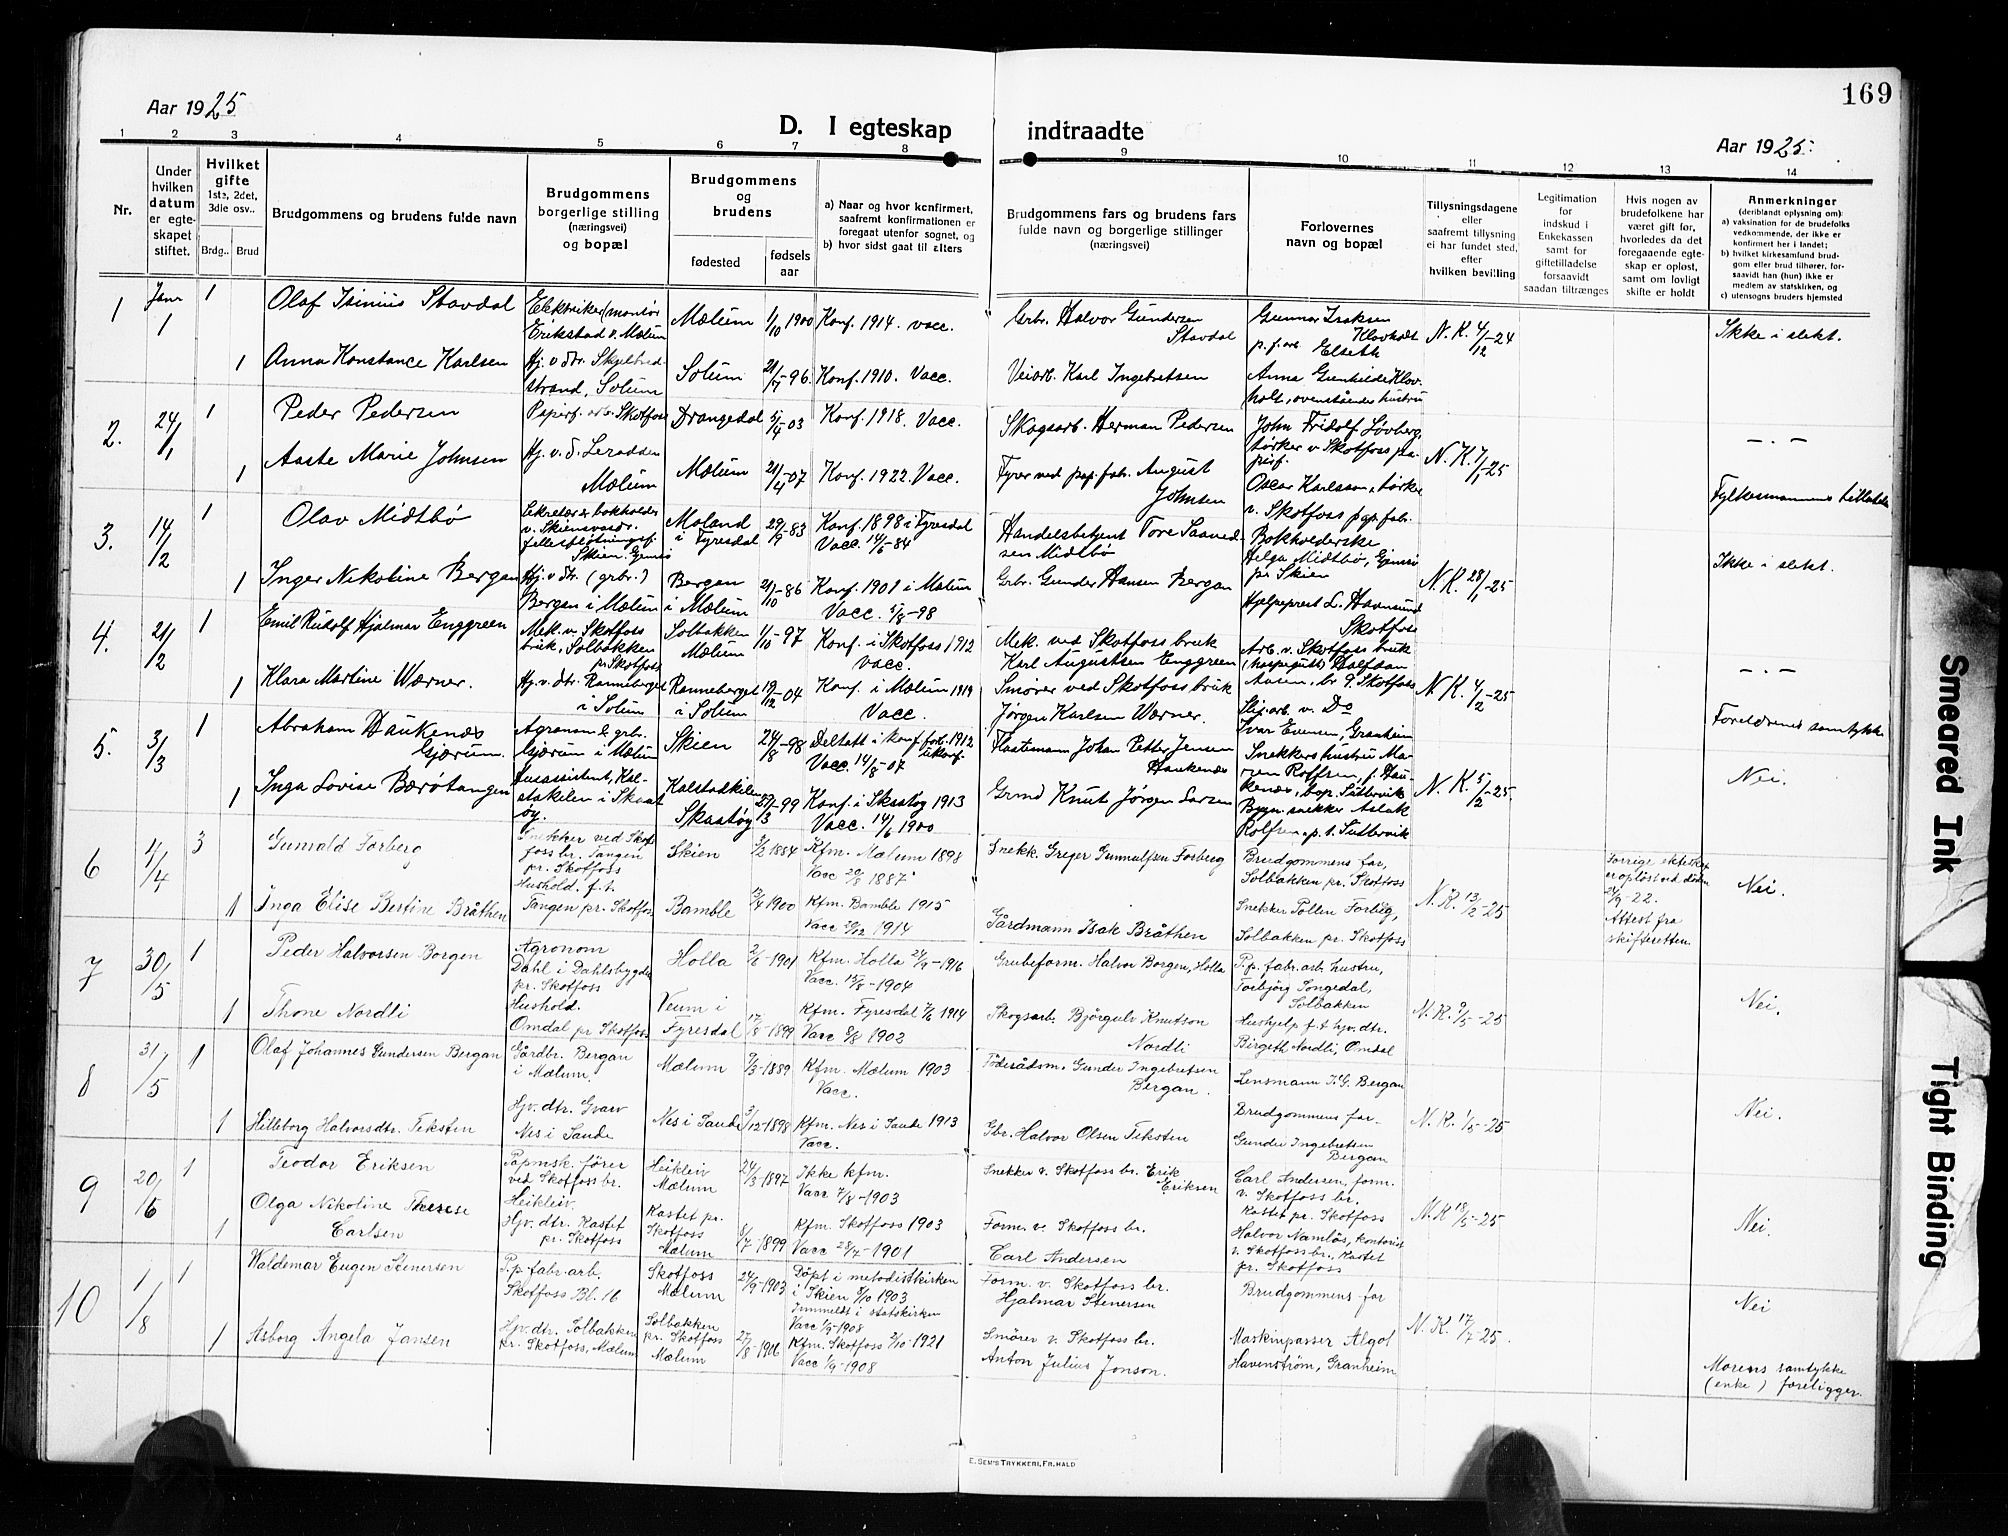 169
Aar 1925
D. I egteskap indtraadte
Aar 1925.
1 2 3 4 5 6 7 8 9 10 11 12 13 14
Nr.
Under hvilken datum er egteskapet stiftet.
Hvilket gifte 1ste, 2det, 3die osv..
Brdg.. Brud
Brudgommens og brudens fulde navn
Brudgommens borgerlige stilling (næringsvei) og bopæl
Brudgommens og brudens
fødested
fødsels aar
a) Naar og hvor konfirmert, saafremt konfirmationen er foregaat utenfor sognet, og
b) hvor sidst gaat til alters
Brudgommens fars og brudens fars fulde navn og borgerlige stillinger (næringsvei)
Forlovernes navn og bopæl
Tillysningsdagene eller saafremt tillysning ei har fundet sted, efter hvilken bevilling
Legitimation for indskud i Enkekassen samt for giftetilladelse forsaavidt saadan tiltrænges
Hvis nogen av brudefolkene har været gift før, hvorledes da det foregaaende egteskap er opløst, samt om lovligt skifte er holdt
Anmerkninger
(deriblandt oplysning om):
a) vaksination for de brudefolks vedkommende, der ikke er konfirmert her i landet;
b) hvilket kirkesamfund brudgom eller brud tilhører, forsaavidt han (hun) ikke er medlem av statskirken, og
c) utensogns bruders hjemsted
1 Janr 1 1 Olaf Isinius Stavdal
Elektriker (montør Erikstad v. Mælum
Mælum 1/10 1900 Konf. 1914. vacc.
Grbr. Halvor Gundersen Stavdal
Gunnar Isaksen Klovholt p. f. arb. Elseth
N. K. 4/12-24
Ikke i slekt.
1 Anna Konstance Karlsen
Hj. v dtr. strand, Solum
Solum 96. Konf. 1910. Vacc.
Veiarb. Karl Ingebretsen
Anna Gunhilde Klovholt, ovenståendes hustru
2. 24/1 1 Peder Pedersen
Papirf. arb. Skotfoss
Drangedal 5/4-03 Konf. 1918. Vacc.
Skogsarb. Herman Pedersen
John Fridolf Løvberg, tørker v Skotfoss papirf.
N. K. 7/1-25
— . —
1 Aaste Marie Johnsen
Hj. v. d. Lerodden Mælum
Mælum 21/4-07 Konf. 1922. Vacc.
Fyrer ved pap. fabr. August Johnsen
Oscar Karlsson, tørker v. Skotfoss pap. fabr.
Fylkesmannens tillatelse
3. 14/2 1 Olav Midtbø
Sekretær & bokholder v. Skiensvasdr. fellesfløtningsf. Skien. Gjemsø
Moland i Fyresdal 29/9-83 Konf. 1898 i Fyresdal Vacc. 14/6-84
Handelsbetjent Tore Saavedsen Midtbø
Bokholderske Helga Midtbø, Gjemsø pr Skien
Ikke i slekt.
1 Inger Nikoline Bergan
Hj. v dtr. (grbr.) Bergan i Mælum
Bergan i Mælum 21/10-86 Konf. 1901 i Mælum Vacc. 1/8-98
Grbr. Gunder Hansen Bergan
Hjelpeprest L. Havnsund Skotfoss
N. K. 28/1-25
4. 21/2 1 Emil Rudolf Hjalmar Enggreen
Mek. v. Skotfoss bruk, Solbakken pr. Skotfoss
Solbakken Mælum 1/10-97 Konf. i Skotfoss 1912 vacc.
Mek. ved Skotfoss bruk Karl Augustsen Enggreen
Arb. v. Skotfoss bruk Halfdan br. 9. Skotfoss
— . —
1 Klara Martine Wærner.
Hj. v. dtr. Ranneberget i Solum
Ranneberget i Solum 19/12-04 Konf. i Mælum 1919 Vacc.
Smører ved Skotfoss bruk Jørgen Karlsen Wærner.
N. K. 4/2-25
Foreldrenes samtykke
5. 3/3 1 Abraham Haukenæs Gjærum.
Agronom & grbr. Gjærum i Mælum
Skien 24/8-98 Deltatt i konf. forb. 1912 Vacc. 14/8-07
Johan Petter Jensen Haukenæs
Ivar Evensen, Granheim Snekkers hustru Maren Rolfsen, f. Haukenæs, bop. Suttervik
Nei.
1 Inga Lovise Bærøtangen
Husassistent, Kalstakilen i Skaatøy.
Kalstadkilen Skaatøy 27/3-99 Konf. i Skaatøy 1913 Vacc. 14/6 1900
Grmd Knut Jørgen Larsen
Bygn. snekker Aslak Rolfsen, p. t. Sutlervik
N. K. 5/2-25.
6 4/4 3 Gunvald Forberg
Snekker ved Skotfoss br. Tangen pr. Skotfoss
Skien 3/2 1884 Kfm. Mælum 1898 Vacc 20/8 1887
Snekk. Greger Gunnulfsen Forberg
Brudgommens far, Solbakken pr. Skotfoss
Forrige ekteskap er opløst ved døden 21/9-22. Attest fra skifteretten.
Nei.
1 Inga Elise Bertine Bråthen
Hushold. f. t. Tangen pr. Skotfoss
Bamble 13/4 1900 Kfm. Bamble 1915 Vacc 29/12 1914
Gårdmann Isak Bråthen
Snekker Pollen Forberg, Solbakken pr. Skotfoss
N. K. 13/2-25
7 30/5 1 Peder Halvorsen Borgen
Agronom Dahl i Dahlsbygden pr. Skotfoss
Holla 2/6-1901 Kfm. Holla 24/9-1916 Vacc. 15/8-1904
Grubeform. Halvor Borgen, Holla
P.p. fabr. arb. hustru, Torbjörg Songedal, Solbakken
Nei.
1 Thone Nordli
Hushold. Omdal pr Skotfoss
Veum i Fyresdal 17/8-1899 Kfm. Fyresdal 7/6 1914 Vacc 8/8 1902
Skogsarb. Bjørgulv Knutson Nordli
Hushjelp f. t hjv. dtr. Birgeth Nordli, Omdal
N. K. 9/5-25
8 31/5 1 Olaf Johannes Gundersen Bergan
Gårdbr. Bergan i Mælum.
Mælum 9/3-1889 Kfm. Mælum 1903 Vacc.
Föderådsm. Gunder Ingebretsen Bergan.
Lensmann I. G. Bergan
Nei.
1 Hilleborg Halvorsdtr. Teksten
Hjv. dtr. Gvarv Nes i Saude
Nes i Saude 3/12-1898 Kfm. Nes i Saude 1913 Vacc.
Gbr. Halvor Olsen Teksten
Brudgommens far Gunder Ingebretsen Bergan
N. K. 1/5-25
9 20/6 1 Teodor Eriksen
Papmsk. fører ved Skotfoss br. Heikleiv
Heikleiv Mælum 24/3-1897 Ikke kfm. Vacc 7/8-1903
Snekker v. Skotfoss br. Erik Eriksen
Carl Andersen, form. v. Skotfoss br. Kastet pr. Skotfoss
Nei.
1 Olga Nikoline Therese Carlsen
Hjv. dtr. Kastet pr. Skotfoss
Kastet pr. Skotfoss Mælum 8/7-1899 Kfm. Skotfoss 1903 Vacc 28/7-1901
Form. v. Skotfoss br. Carl Andersen
Halvor Namløs, kontorist v. Skotfoss br., Kastet pr. Skotfoss
N. K 18/5-25
10 1/8 1 Waldemar Eugen Stenersen
P.p. fabr. arb. Skotfoss Bl. 16
Skotfoss Mælum 24/9-1903 Döpt i metodistkirken i Skien 8/10 1903 Innmeldt i statskirken Vacc 1/9-1908
Form. v. Skotfoss br. Hjalmar Stenersen
Brudgommens far
Nei
1 Asborg Angela Jansen
Hjv. dtr. Solbakken pr. Skotfoss, Mælum
Solbakken pr. Skotfoss Mælum 27/8-1906 Kfm. Skotfoss 2/10-1921 Vacc 1/9-1908
Smörer v. Skotfoss br. Anton Julius Jonson.
Maskinpasser Algot Havenström, Granheim
N. K. 17/7-25.
Morens samtykke (enke) foreligger.
E. Sem's Trykkeri, Fr.hald
Smeared Ink
Tight Binding